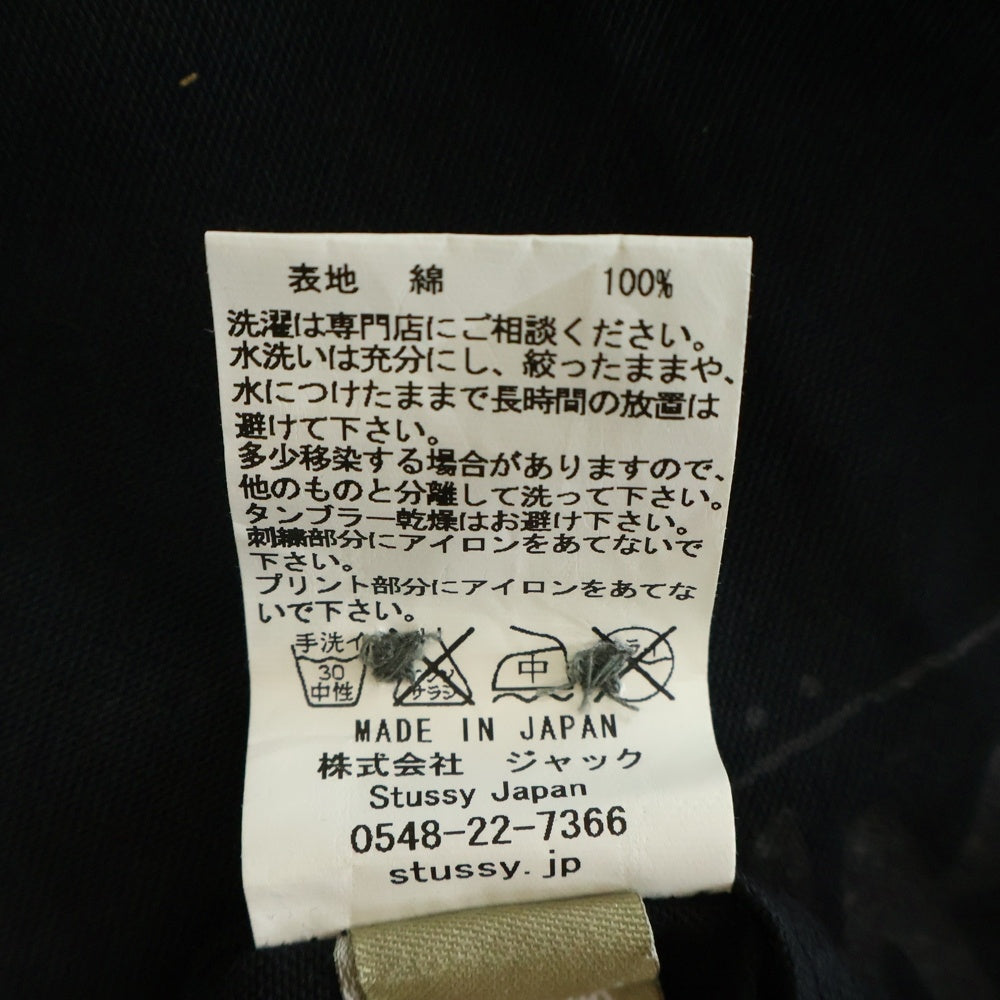 表地　綿　100%
洗濯は専門店にご相談ください。
水洗いは充分にし、絞ったままや、
水につけたままで長時間の放置は
避けて下さい。
多少移染する場合がありますので、
他のものと分離して洗って下さい。
タンブラー乾燥はお避け下さい。
刺繍部分にアイロンをあてないで
下さい。
プリント部分にアイロンをあてな
いで下さい。
手洗イ
30 中
中性 サラシ
MADE IN JAPAN
株式会社　ジャック
Stussy Japan
0548-22-7366
stussy.jp